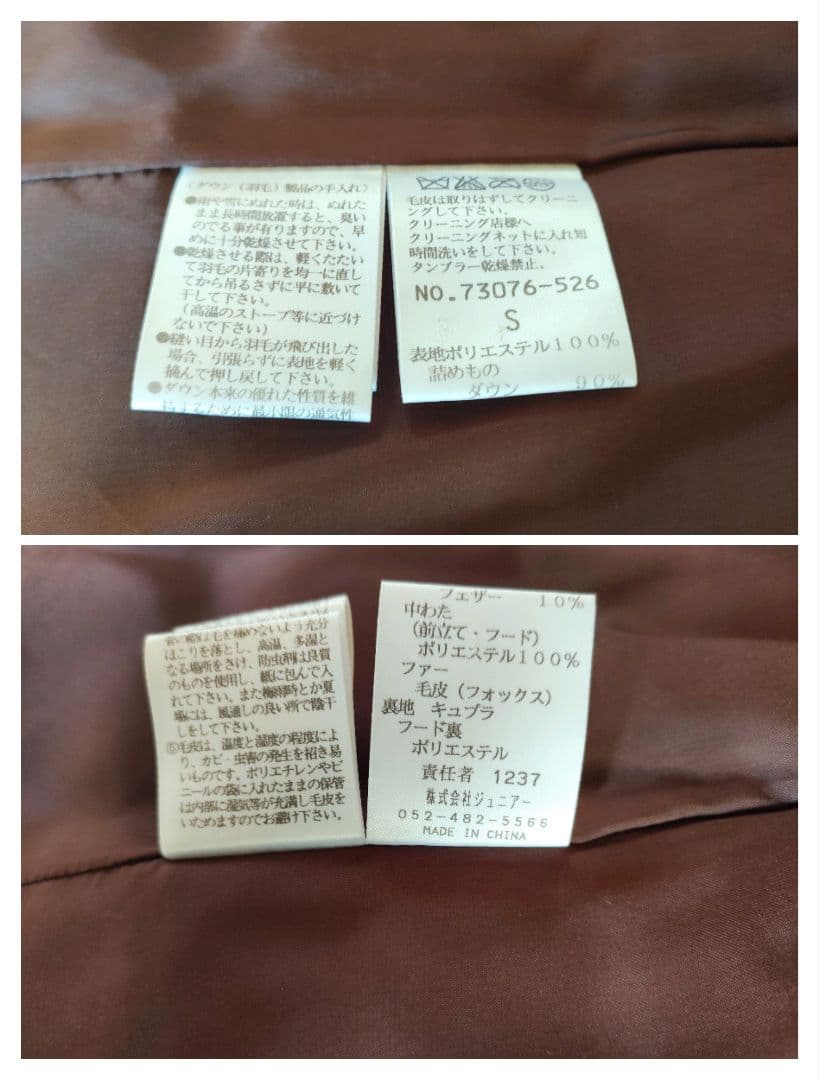 (ダウン(羽毛)製品の手入れ)
●雨や雪にぬれた時は、ぬれた
まま長時間放置すると、臭い
のでる事が有りますので、早
めに十分乾燥させて下さい。
●乾燥させる際は、軽くたたい
て羽毛の片寄りを均一に直し
てから吊るさずに平に敷いて
干して下さい。
(高温のストーブ等に近づけ
ないで下さい)
●縫い目から羽毛が飛び出した
場合、引張らずに表地を軽く
摘んで押し戻して下さい。
●ダウン本来の優れた性質を維
持するために最小限の通気性
毛皮は取りはずしてクリーニ
ングして下さい。
クリーニング店様へ
クリーニングネットに入れ短
時間洗いをして下さい。
タンブラー乾燥禁止。
NO.73076-526
S
表地ポリエステル100%
詰めもの
ダウン 90%
毛を痛めないよう充分
ほこりを落とし、高温、多湿と
なる場所をさけ、防虫剤は良質
のものを使用し、紙に包んで入
れて下さい。また梅雨時とか夏
場には、風通しの良い所で陰干
しをして下さい。
⑤毛皮は、温度と湿度の程度によ
り、カビ・虫害の発生を招き易
いものです。ポリエチレンやビ
ニールの袋に入れたままの保管
は内部に湿気等が充満し毛皮を
いためますのでお避け下さい。
フェザー 10%
中わた
(前立て・フード)
ポリエステル100%
ファー
毛皮(フォックス)
裏地 キュプラ
フード裏
ポリエステル
責任者 1237
株式会社ジュニアー
052-482-5566
MADE IN CHINA